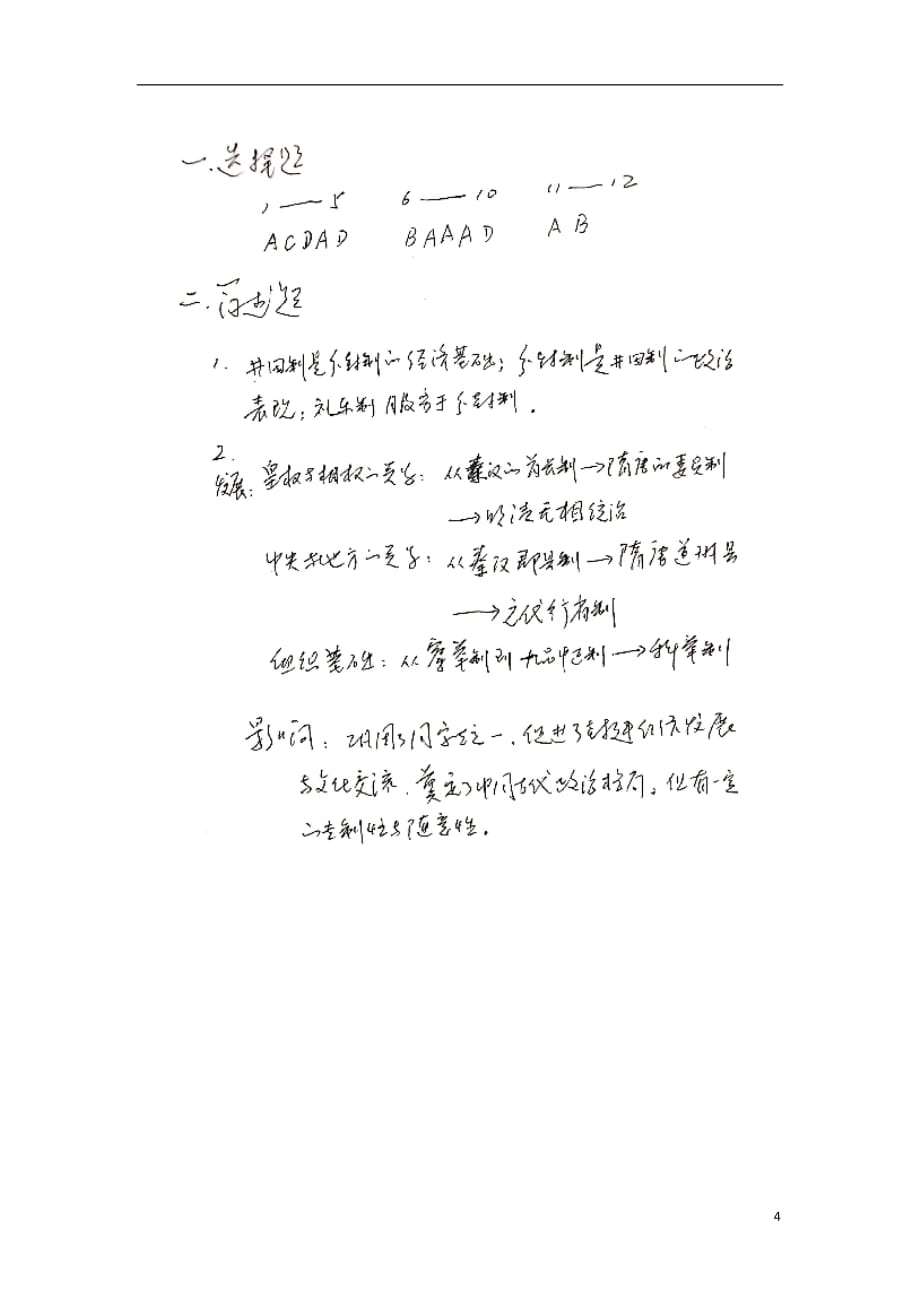 一.选择题
1——5 6——10 11——12
ACDAD BAAAD AB
二.简述题
1. 井田制是分封制的经济基础；分封制是井田制的政治
表现；礼乐制服务于分封制.
2.
发展：皇权与相权的关系：从秦汉的首长制→隋唐的委员制
→明清无相统治
中央与地方的关系：从秦汉郡县制→隋唐道州县
→元代行省制
组织基础：从察举制到九品中正制→科举制
影响：巩固了国家统一，促进了封建经济发展
与文化交流，奠定了中国古代政治格局。但有一定
的专制性与随意性.
4